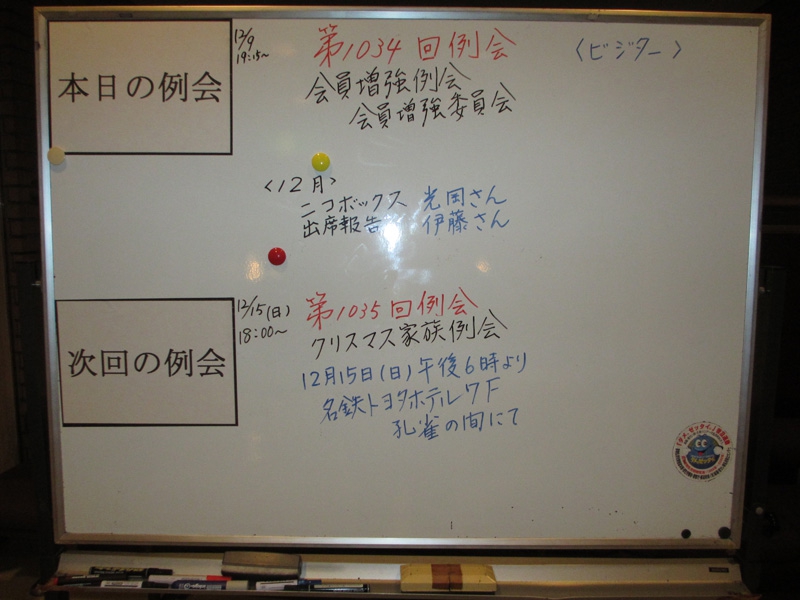 本日の例会
12/9
19:15〜
第1034回例会
会員増強例会
会員増強委員会
〈ビジター〉
〈12月〉
ニコボックス 光岡さん
出席報告 伊藤さん
次回の例会
12/15(日)
18:00〜
第1035回例会
クリスマス家族例会
12月15日(日)午後6時より
名鉄トヨタホテル7F
孔雀の間にて